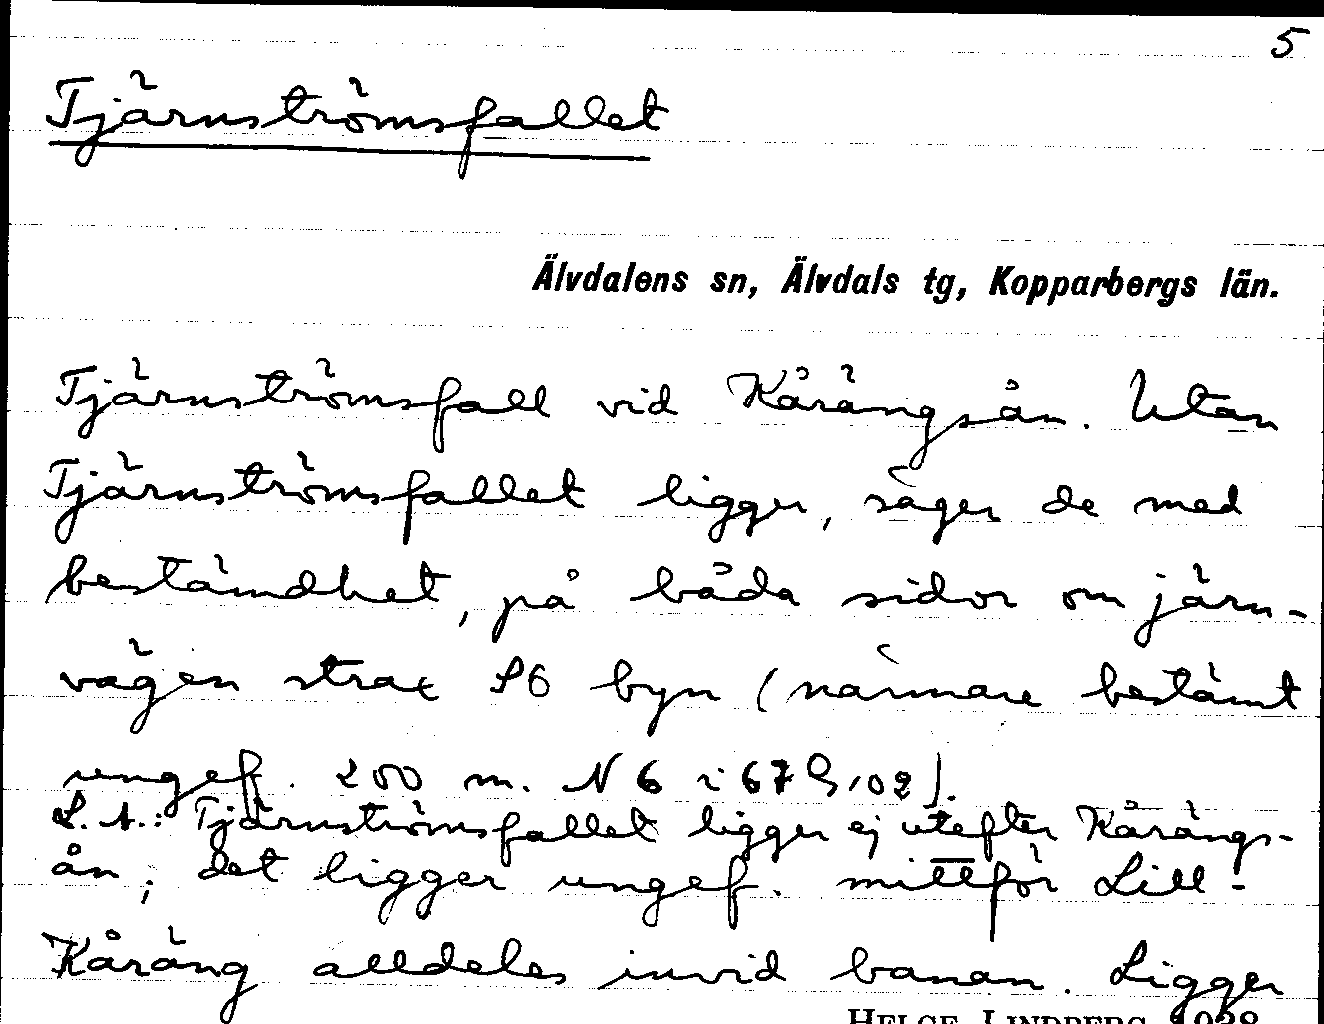 5
Tjärnströmsfallet
Älvdalens sn, Älvdals tg, Kopparbergs län.
Tjärnströmsfall vid Kårängsån. Utan
Tjärnströmsfallet ligger, säger de med
bestämdhet, på båda sidor om järn-
vägen strax SO byn (närmare bestämt
ungef. 200 m. N 6 i 67
L. A.: Tjärnströmsfallet ligger ej utefter Kårängs-
ån; det ligger ungef. mittför Lill-
Kåräng alldeles invid banan. Ligger
HELGE LINDBERG 1938